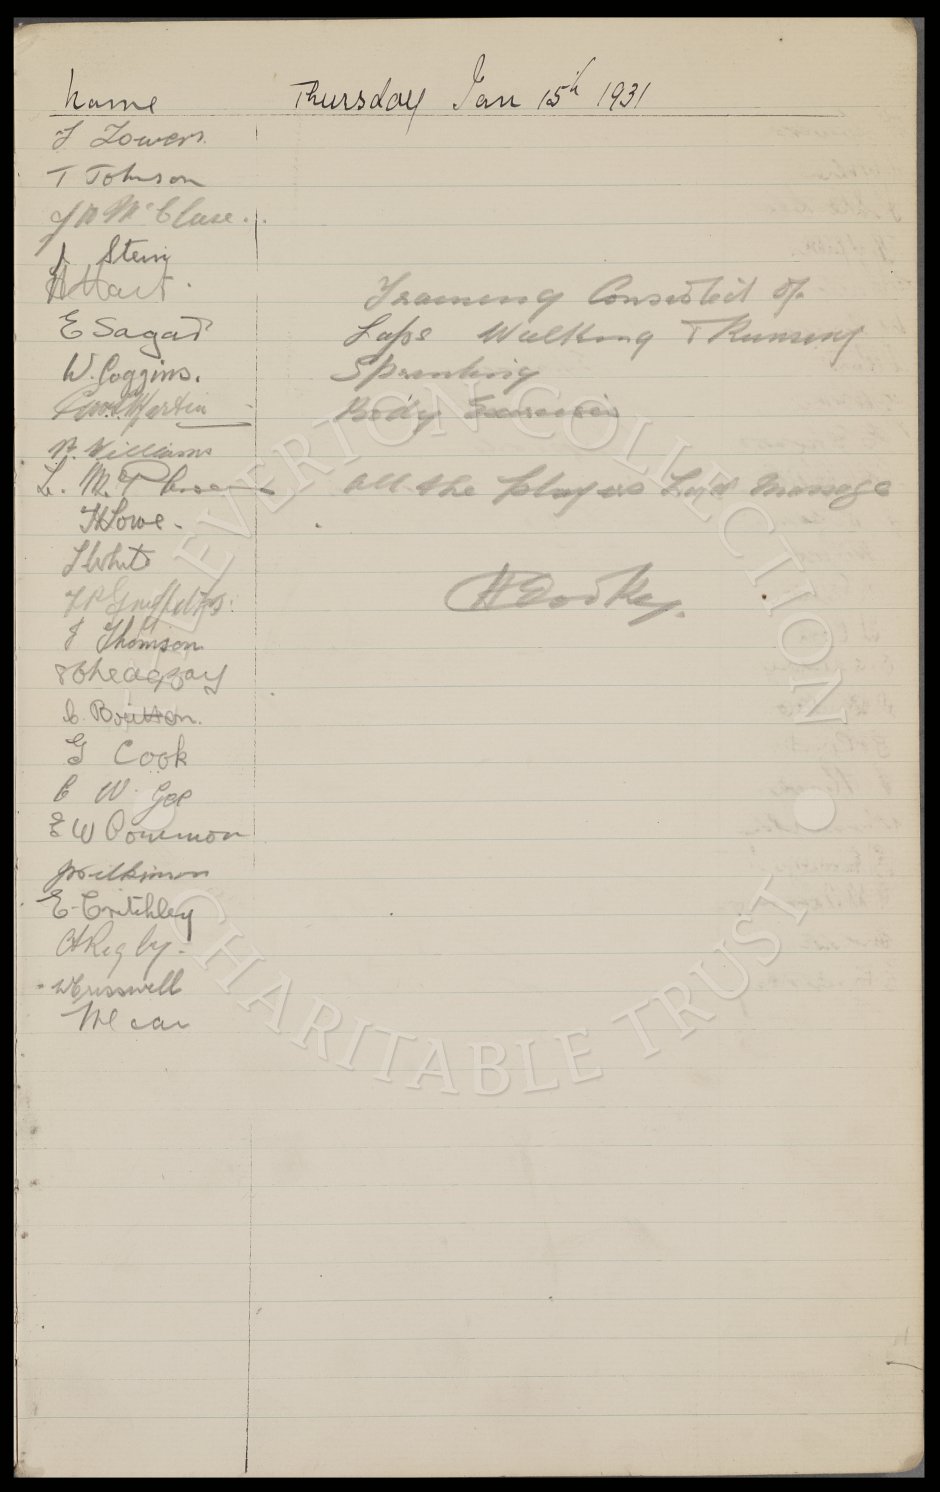 Name Thursday Jan 15th 1931
J Towers.
T Johnson
J H McClure.
J Stein
H Hart.
E Sagar
W. Coggins.
Martin
B. Williams
L. M. P
H Lowe.
T White
T P Griffiths.
J Thomson
C. Britton.
G Cook
C W Gee
E W Common
J Wilkinson
E. Critchley
A Rigby.
W Cresswell
McCar
Training Consisted of
Laps Walking & Running
Sprinting
Body Exercises
All the players had massage
H Cooke.
EVERTON COLLECTION
CHARITABLE TRUST